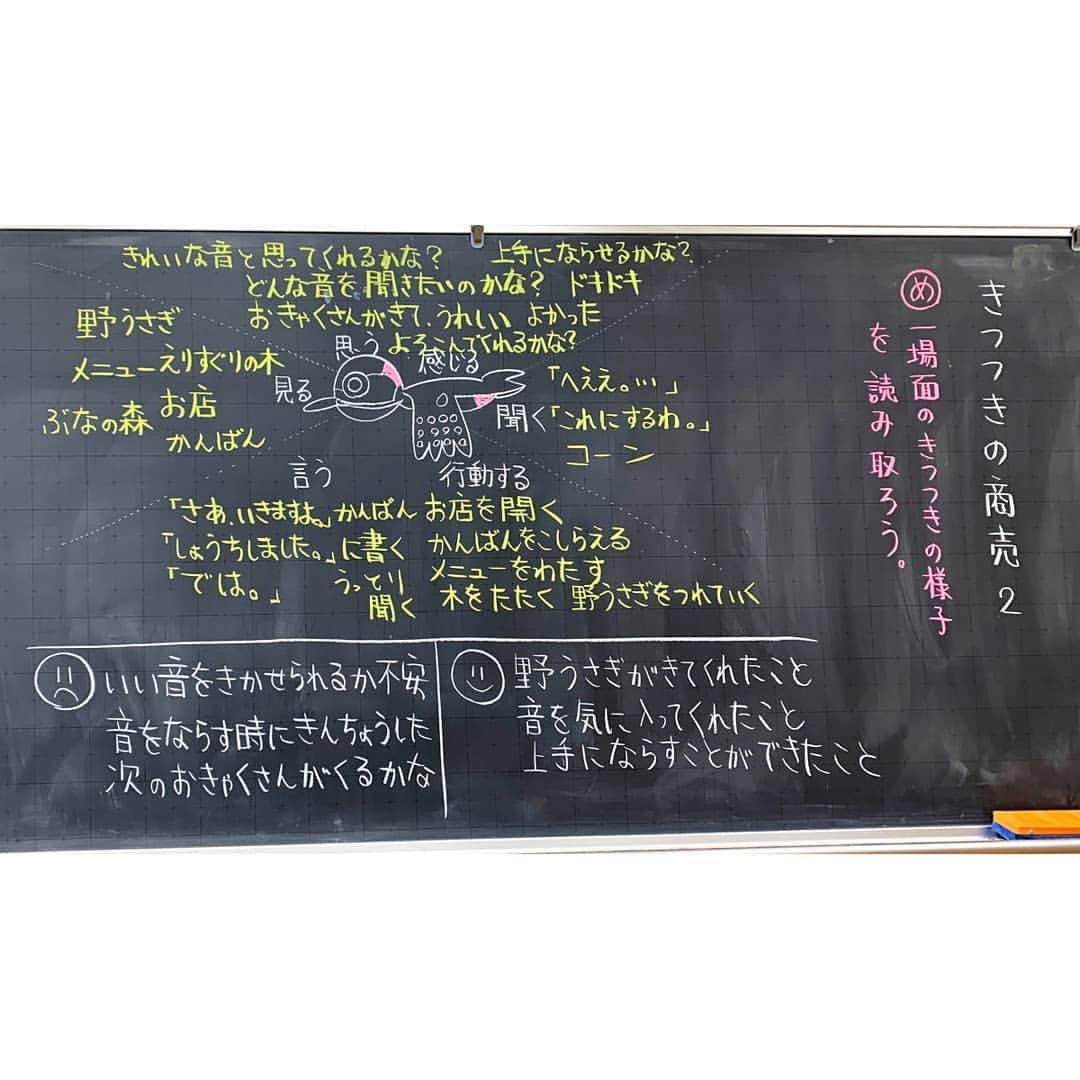 きつつきの商売 2
め
一場面のきつつきの様子
を読み取ろう。
きれいな音と思ってくれるかな? 上手にならせるかな?
どんな音を聞きたいのかな? ドキドキ
おきゃくさんがきて、うれしい よかった
よろこんでくれるかな?
思う 感じる
見る
野うさぎ
メニュー えりすぐりの木
ぶなの森 お店
かんばん
聞く
「へええ。…」
「これにするわ。」
コーン
言う
「さあ、いきますよ。」 かんばん
「しょうちしました。」 に書く
「では。」 うっとり
聞く
行動する
お店を開く
かんばんをこしらえる
メニューをわたす
木をたたく 野うさぎをつれていく
いい音をきかせられるか不安
音をならす時にきんちょうした
次のおきゃくさんがくるかな
野うさぎがきてくれたこと
音を気に入ってくれたこと
上手にならすことができたこと